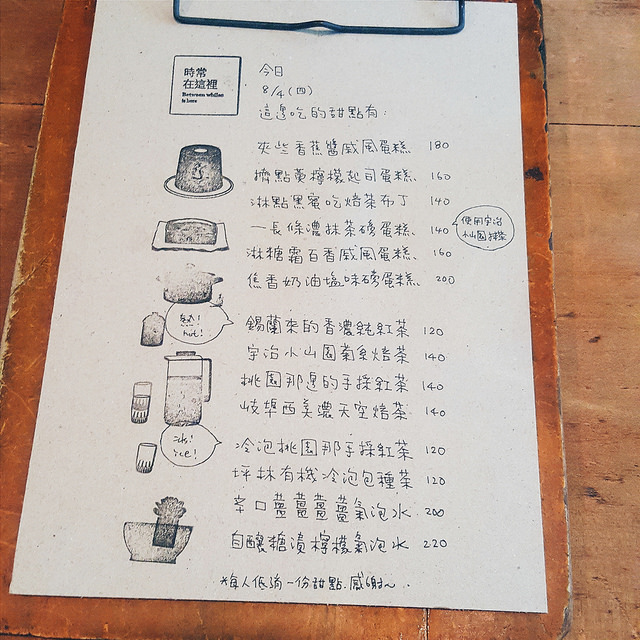 時常
在這裡
Between whiles
is here
今日
8/4(四)
這邊吃的甜點有:
夾些香蕉醬戚風蛋糕、 180
擠點萊檸檬起司蛋糕、 160
淋點黑蜜吃焙茶布丁 140
一長條濃抹茶磅蛋糕、 140
使用宇治
小山園抹茶
淋糖霜百香戚風蛋糕、 160
焦香奶油塩味磅蛋糕、 200
熱!
hot!
錫蘭來的香濃純紅茶 120
宇治小山園菊系焙茶 140
桃園那邊的手採紅茶 140
岐埠西美濃天空焙茶 140
冰!
ice!
冷泡桃園那手採紅茶 120
坪林有機冷泡包種茶 120
辛口薑薑薑薑氣泡水 200
自釀糖漬檸檬氣泡水 220
*每人低消一份甜點.感謝~